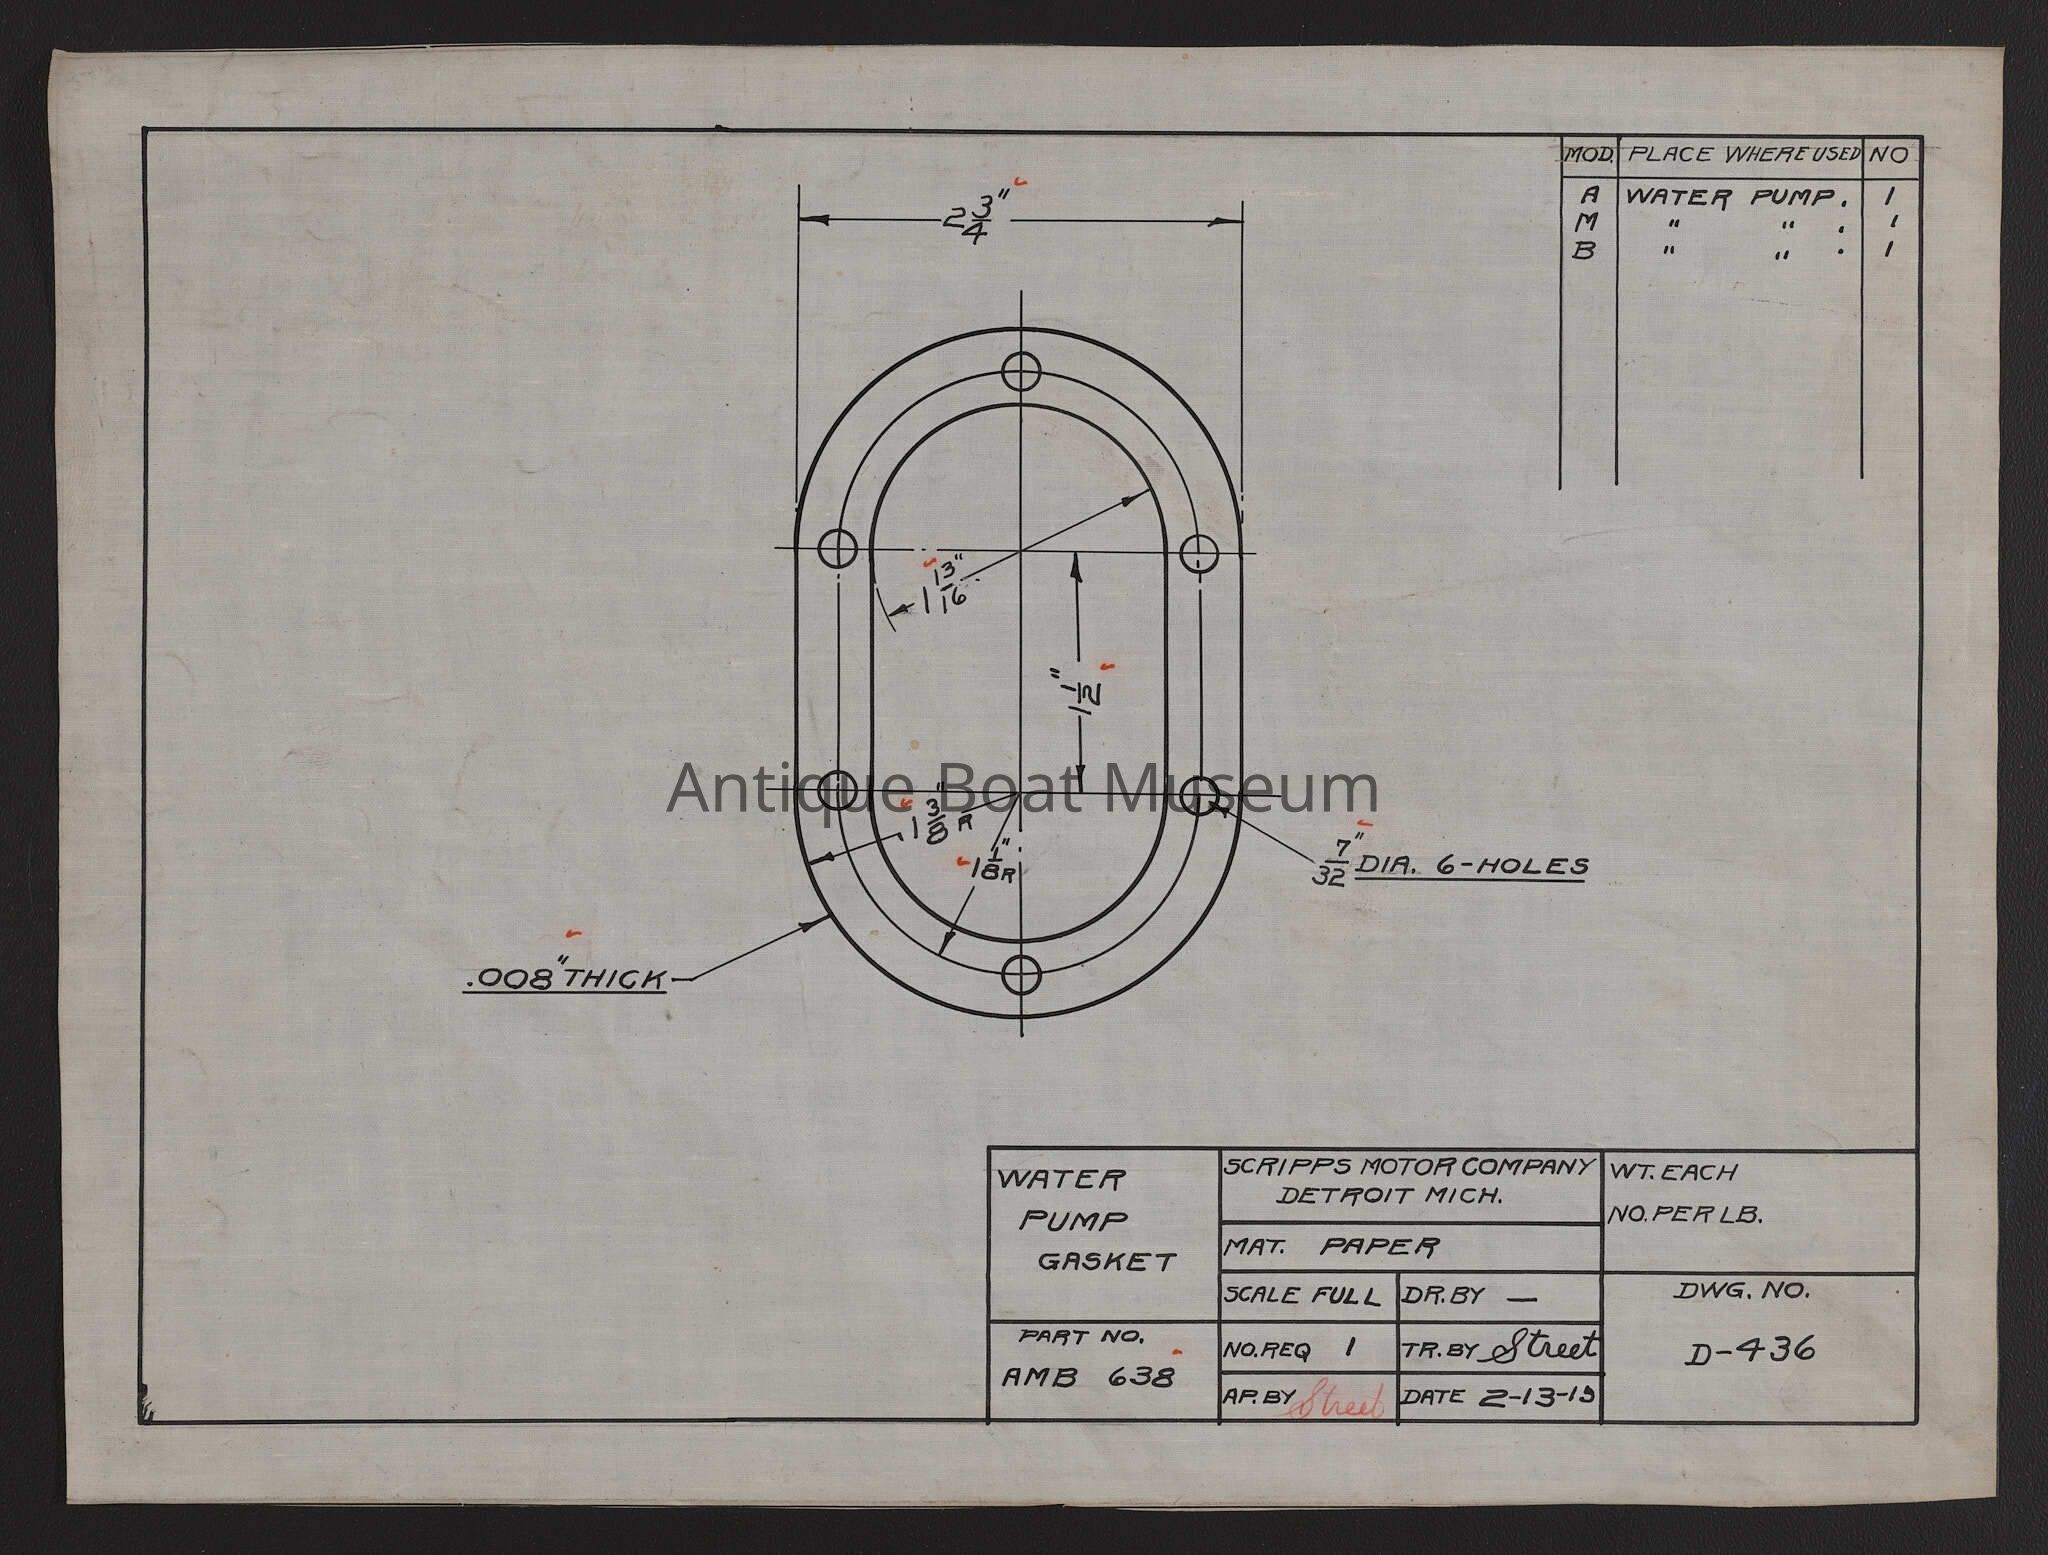 MOD. PLACE WHERE USED NO
A WATER PUMP. 1
M " " . 1
B " " . 1
2 3/4"
1 13/16"
1 1/2"
Antique Boat Museum
1 3/8" R
1 1/8" R
7/32" DIA. 6-HOLES
.008" THICK
WATER
PUMP
GASKET
PART NO.
AMB 638
SCRIPPS MOTOR COMPANY
DETROIT MICH.
MAT. PAPER
SCALE FULL
DR. BY —
NO. REQ 1
TR. BY Street
AP. BY Street
DATE 2-13-19
WT. EACH
NO. PER LB.
DWG. NO.
D-436